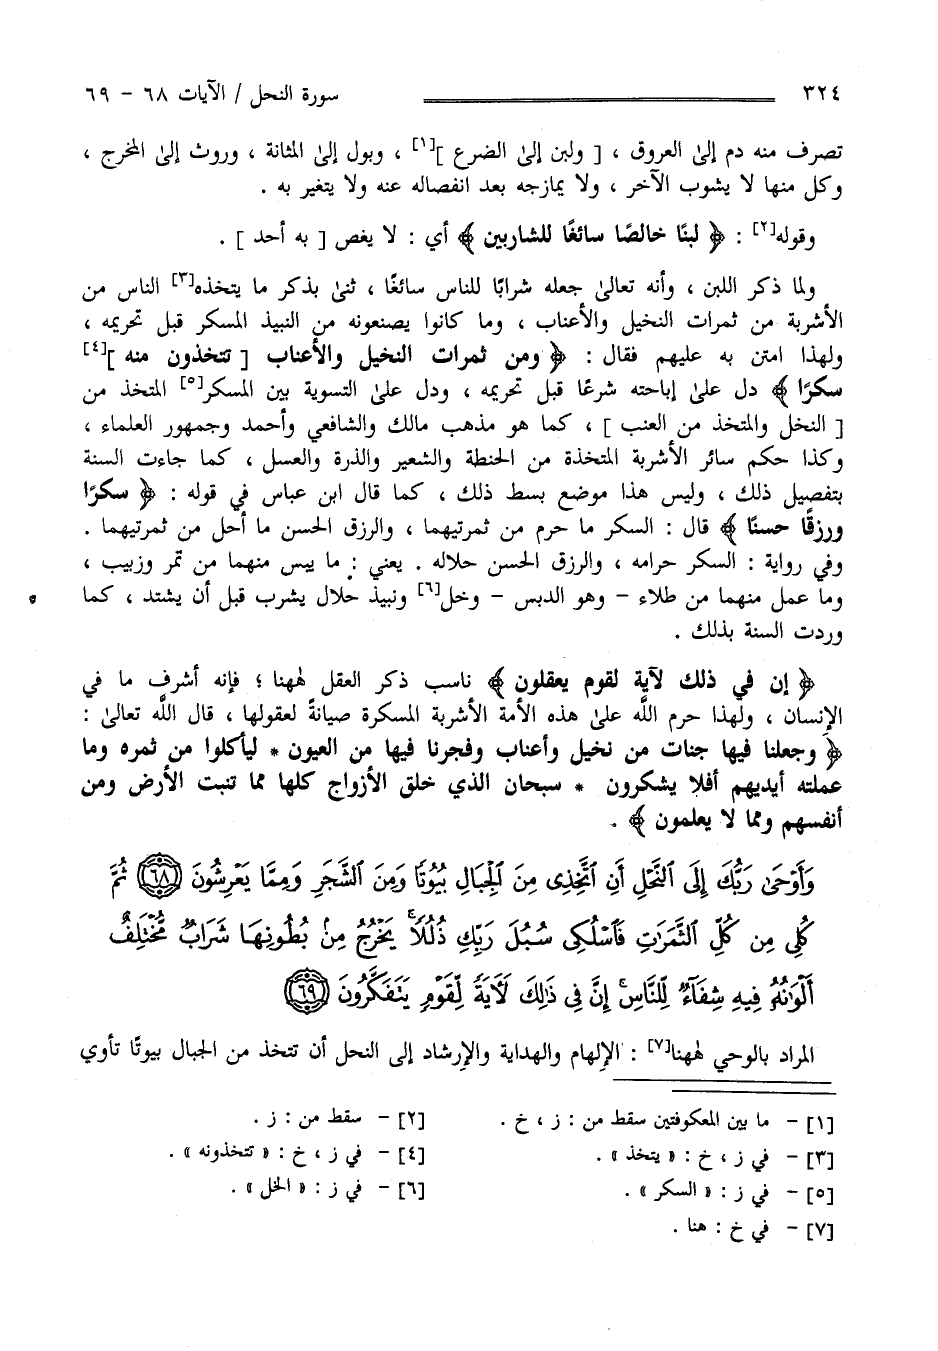 ٣٢٤ سورة النحل / الآيات ٦٨ - ٦٩
تصرف منه دم إلى العروق ، [ ولبن إلى الضرع ][١] ، وبول إلى المثانة ، وروث إلى المخرج ،
وكل منها لا يشوب الآخر ، ولا يمازجه بعد انفصاله عنه ولا يتغير به .
وقوله[٢] : ﴿ لبنًا خالصًا سائغًا للشاربين ﴾ أي : لا يغص [ به أحد ] .
ولما ذكر اللبن ، وأنه تعالى جعله شرابًا للناس سائغًا ، ثنى بذكر ما يتخذه[٣] الناس من
الأشربة من ثمرات النخيل والأعناب ، وما كانوا يصنعونه من النبيذ المسكر قبل تحريمه ،
ولهذا امتن به عليهم فقال : ﴿ ومن ثمرات النخيل والأعناب [ تتخذون منه ][٤]
سكرًا ﴾ دل على إباحته شرعًا قبل تحريمه ، ودل على التسوية بين المسكر[٥] المتخذ من
[ النخل والمتخذ من العنب ] ، كما هو مذهب مالك والشافعي وأحمد وجمهور العلماء ،
وكذا حكم سائر الأشربة المتخذة من الحنطة والشعير والذرة والعسل ، كما جاءت السنة
بتفصيل ذلك ، وليس هذا موضع بسط ذلك ، كما قال ابن عباس في قوله : ﴿ سكرًا
ورزقًا حسنًا ﴾ قال : السكر ما حرم من ثمرتيهما ، والرزق الحسن ما أحل من ثمرتيهما .
وفي رواية : السكر حرامه ، والرزق الحسن حلاله . يعني : ما يبس منهما من تمر وزبيب ،
وما عمل منهما من طلاء - وهو الدبس - وخل[٦] ونبيذ حلال يشرب قبل أن يشتد ، كما
وردت السنة بذلك .
﴿ إن في ذلك لآية لقوم يعقلون ﴾ ناسب ذكر العقل لههنا ؛ فإنه أشرف ما في
الإنسان ، ولهذا حرم الله على هذه الأمة الأشربة المسكرة صيانةً لعقولها ، قال الله تعالى :
﴿ وجعلنا فيها جنات من نخيل وأعناب وفجرنا فيها من العيون * ليأكلوا من ثمره وما
عملته أيديهم أفلا يشكرون * سبحان الذي خلق الأزواج كلها مما تنبت الأرض ومن
أنفسهم ومما لا يعلمون ﴾ .
وَأَوْحَىٰ رَبُّكَ إِلَى ٱلنَّحْلِ أَنِ ٱتَّخِذِى مِنَ ٱلْجِبَالِ بُيُوتًا وَمِنَ ٱلشَّجَرِ وَمِمَّا يَعْرِشُونَ ﴿٦٨﴾ ثُمَّ
كُلِى مِن كُلِّ ٱلثَّمَرَٰتِ فَٱسْلُكِى سُبُلَ رَبِّكِ ذُلُلًا ۚ يَخْرُجُ مِنۢ بُطُونِهَا شَرَابٌ مُّخْتَلِفٌ
أَلْوَٰنُهُۥ فِيهِ شِفَآءٌ لِّلنَّاسِ ۗ إِنَّ فِى ذَٰلِكَ لَءَايَةً لِّقَوْمٍ يَتَفَكَّرُونَ ﴿٦٩﴾
المراد بالوحي لههنا[٧] : الإلهام والهداية والإرشاد إلى النحل أن تتخذ من الجبال بيوتًا تأوي
[١] - ما بين المعكوفتين سقط من : ز ، خ . [٢] - سقط من : ز .
[٣] - في ز ، خ : « يتخذ » . [٤] - في ز ، خ : « تتخذونه » .
[٥] - في ز : « السكر » . [٦] - في ز : « الخل » .
[٧] - في خ : هنا .